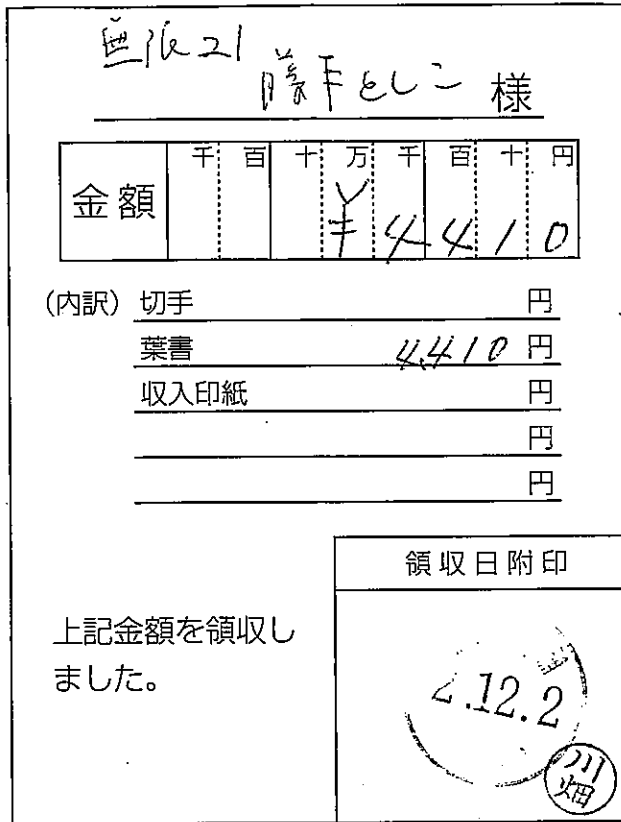 無派21
藤井としこ 様
千 百 十 万 千 百 十 円
金額 ¥4410
(内訳) 切手 円
葉書 4,410 円
収入印紙 円
円
円
領収日附印
上記金額を領収し
ました。
2.12.2
川畑